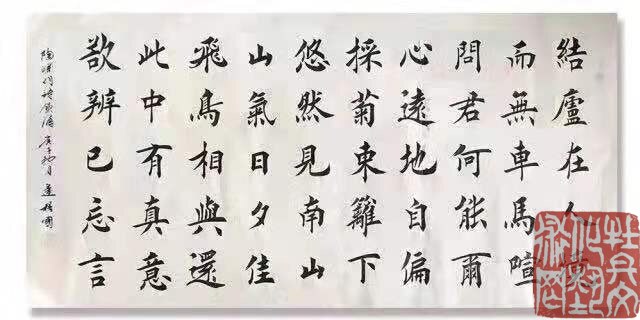 結廬在人境
而無車馬喧
問君何能爾
心遠地自偏
採菊東籬下
悠然見南山
山氣日夕佳
飛鳥相與還
此中有真意
欲辨已忘言
陶渊明诗飲酒 庚子秋月